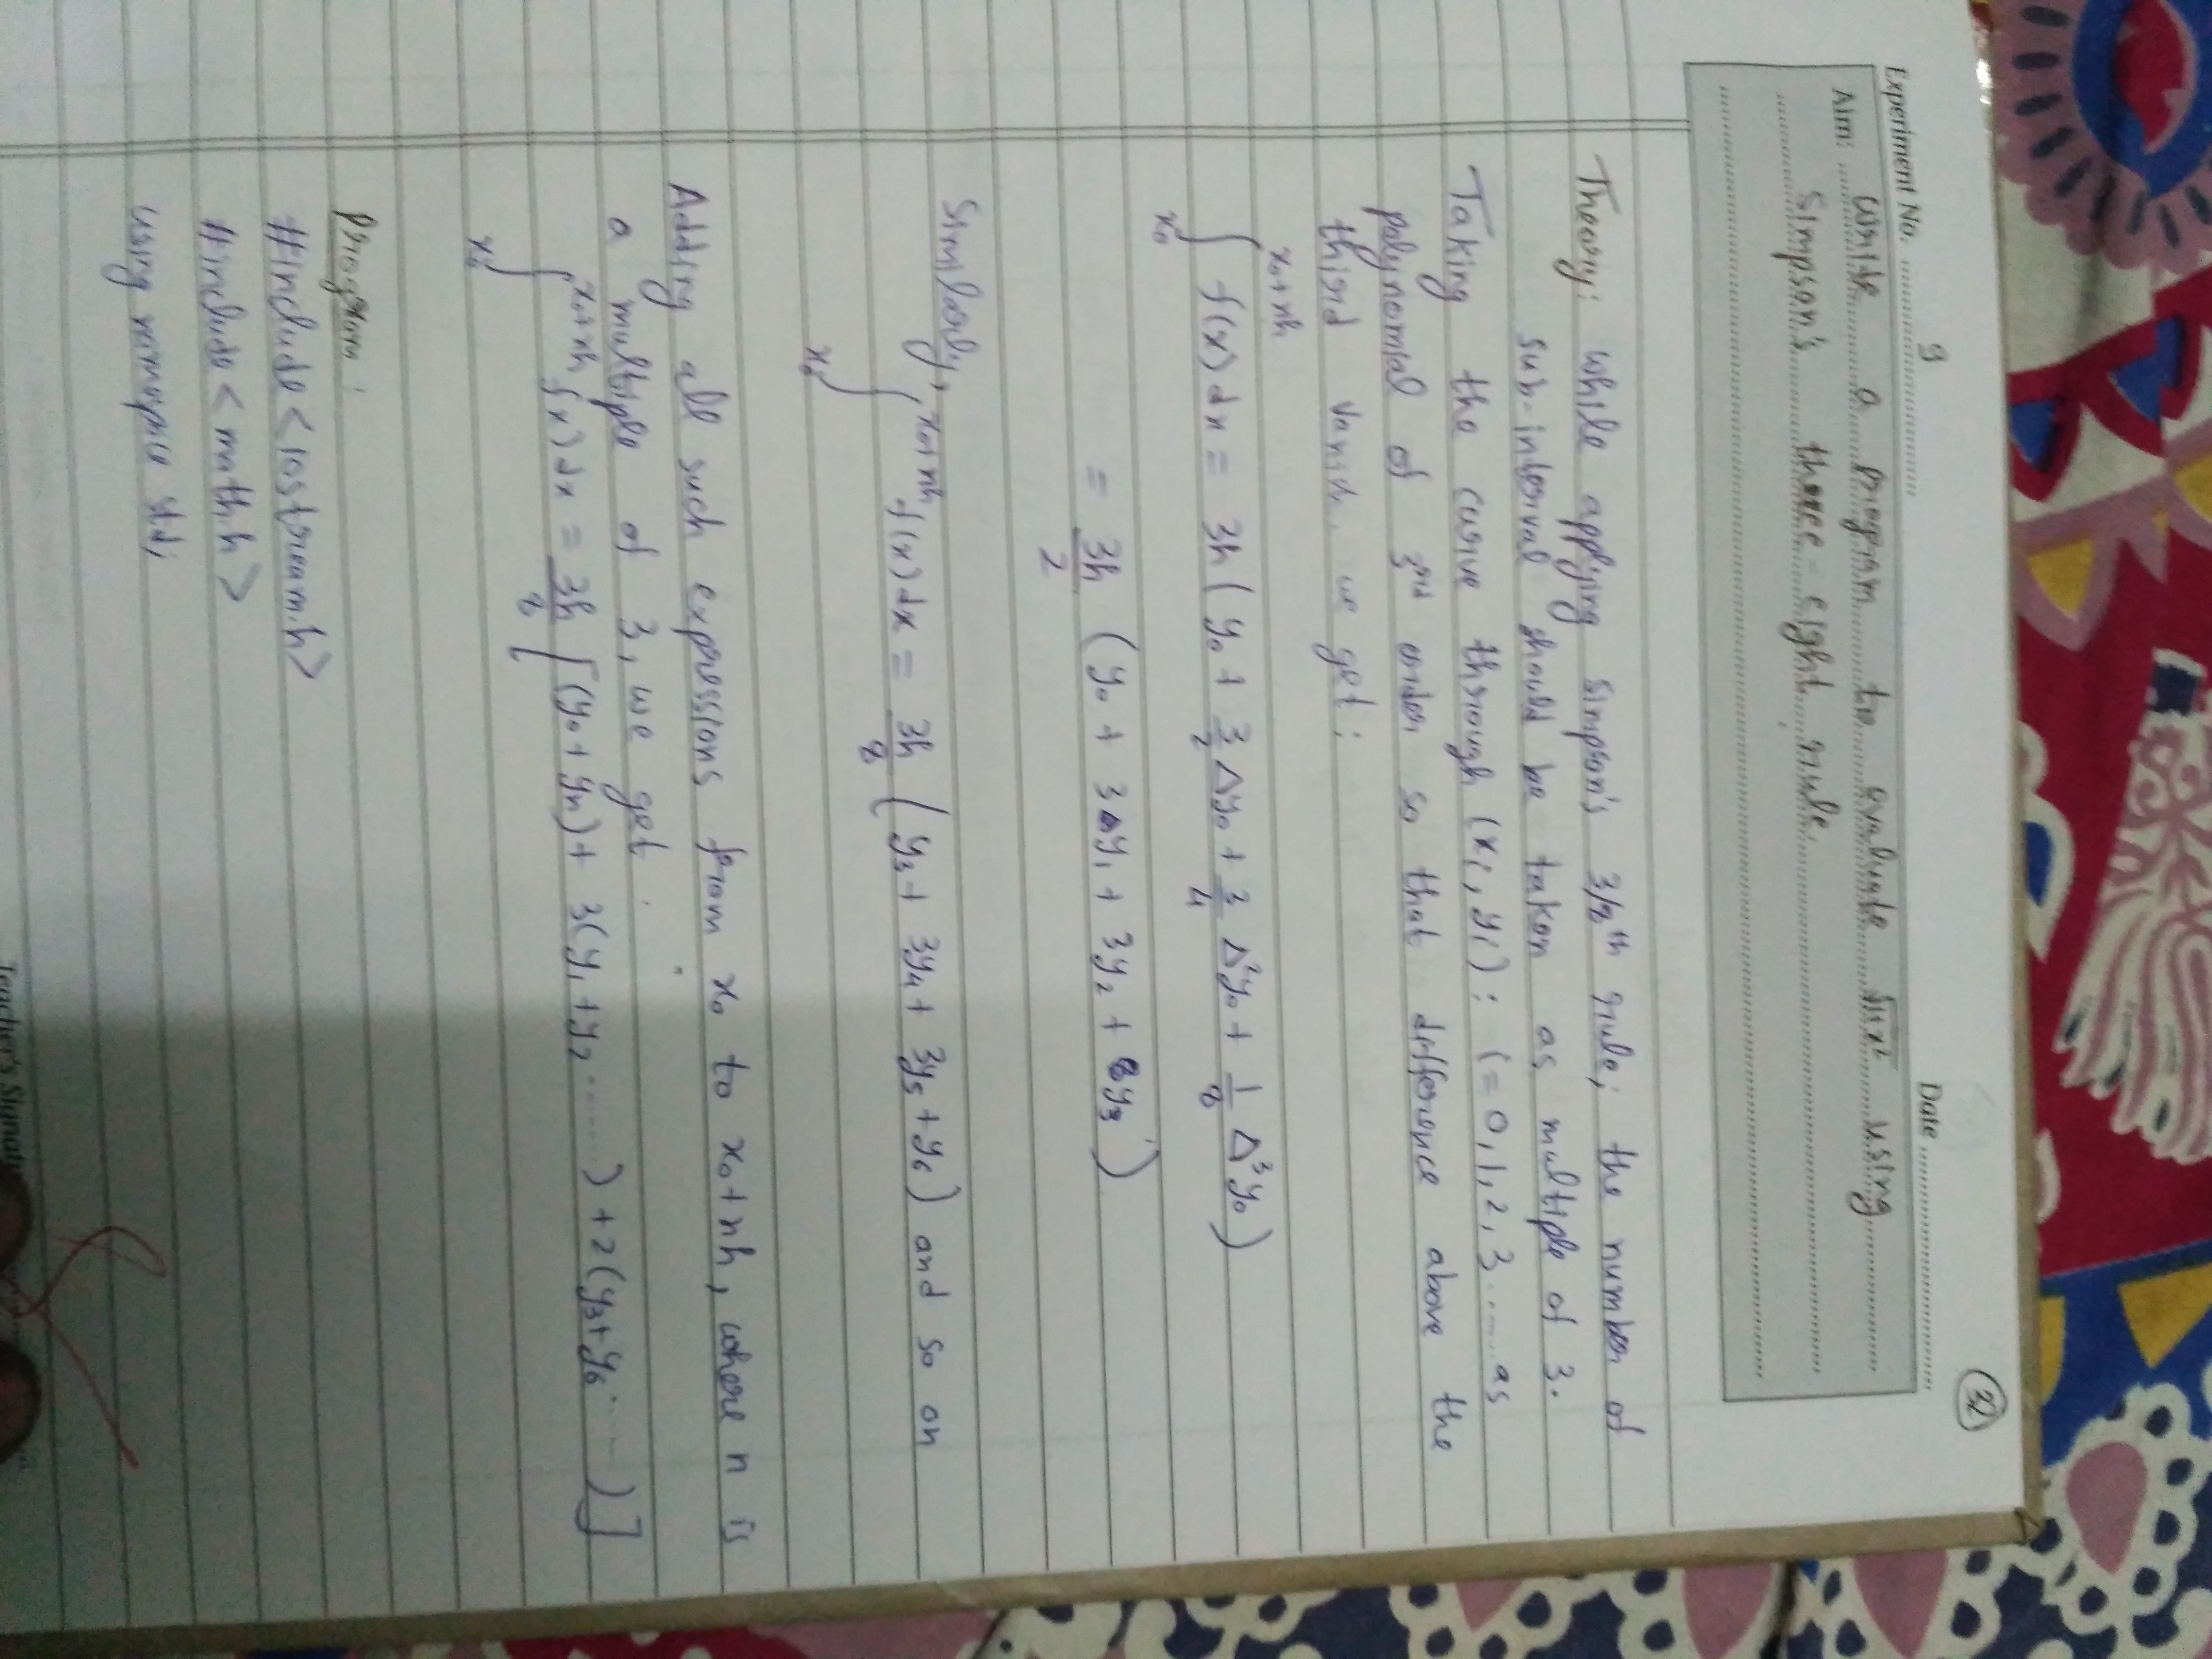 32
Experiment No. 9
Date
Aim: Write a program to evaluate √1+x² using
Simpson's three eight rule.
Theory: While applying Simpson's 3/8th rule; the number of
sub-interval should be taken as multiple of 3.
Taking the curve through (xi, yi): i=0,1,2,3......as
polynomial of 3rd order so that difference above the
third vanish. we get:
∫ x₀ to x₀+nh f(x) dx = 3h ( y₀ + 3/2 Δy₀ + 3/4 Δ²y₀ + 1/8 Δ³y₀ )
= 3h/2 ( y₀ + 3y₁ + 3y₂ + 8y₃ )
Similarly,
∫ x₀ to x₀+nh f(x) dx = 3h/8 ( y₃ + 3y₄ + 3y₅ + y₆ ) and so on
Adding all such expressions from x₀ to x₀+nh, where n is
a multiple of 3, we get.
∫ x₀ to x₀+nh f(x) dx = 3h/8 [ (y₀ + yn) + 3(y₁ + y₂ ......) + 2(y₃ + y₆ ......) ]
Program:
#include<iostream.h>
#include<math.h>
using namespace std;
Teacher's